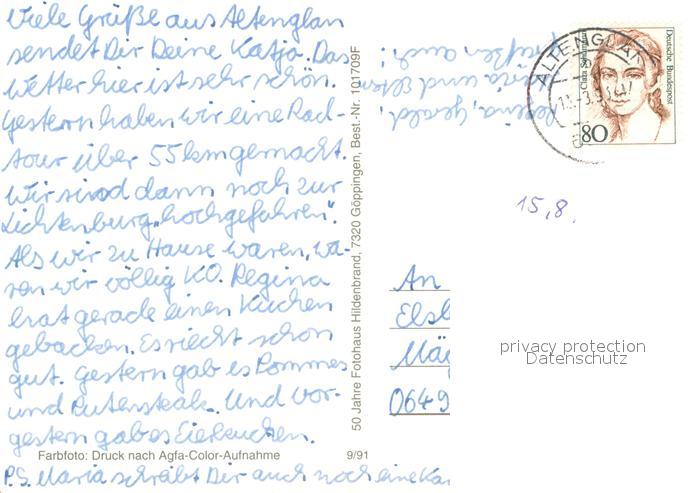 Viele Grüße aus Altenglan
sendet Dir Deine Katja. Das
Wetter hier ist sehr schön.
Gestern haben wir eine Rad-
tour über 55 km gemacht.
Wir sind dann noch zur
Lichtenburg „hochgefahren".
Als wir zu Hause waren, wa-
ren wir völlig KO. Regina
hat gerade einen Kuchen
gebacken. Es riecht schon
gut. Gestern gab es Pommes
und Putensteak. Und vor-
gestern gab es Eierkuchen.
P.S. Maria schreibt Dir auch noch eine Kar
Farbfoto: Druck nach Agfa-Color-Aufnahme 9/91
50 Jahre Fotohaus Hildenbrand, 7320 Göppingen, Best.-Nr. 101709F
Regina, Gerald,
und Eltern
grüßen auch!
ALTENGLAN
Clara Schumann
Deutsche Bundespost
80
15,8.
An
Elsb
Mär
0649
privacy protection
Datenschutz